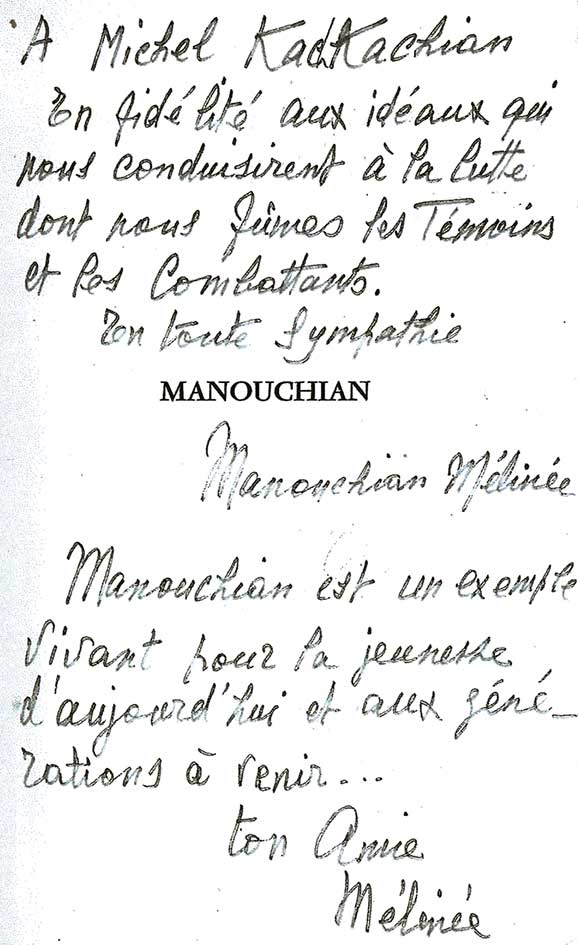 A Michel KadKachian
En fidélité aux idéaux qui
nous conduisirent à la lutte
dont nous fûmes les Témoins
et les Combattants.
En toute Sympathie
MANOUCHIAN
Manouchian Mélinée
Manouchian est un exemple
vivant pour la jeunesse
d'aujourd'hui et aux géné-
rations à venir...
ton Amie
Mélinée